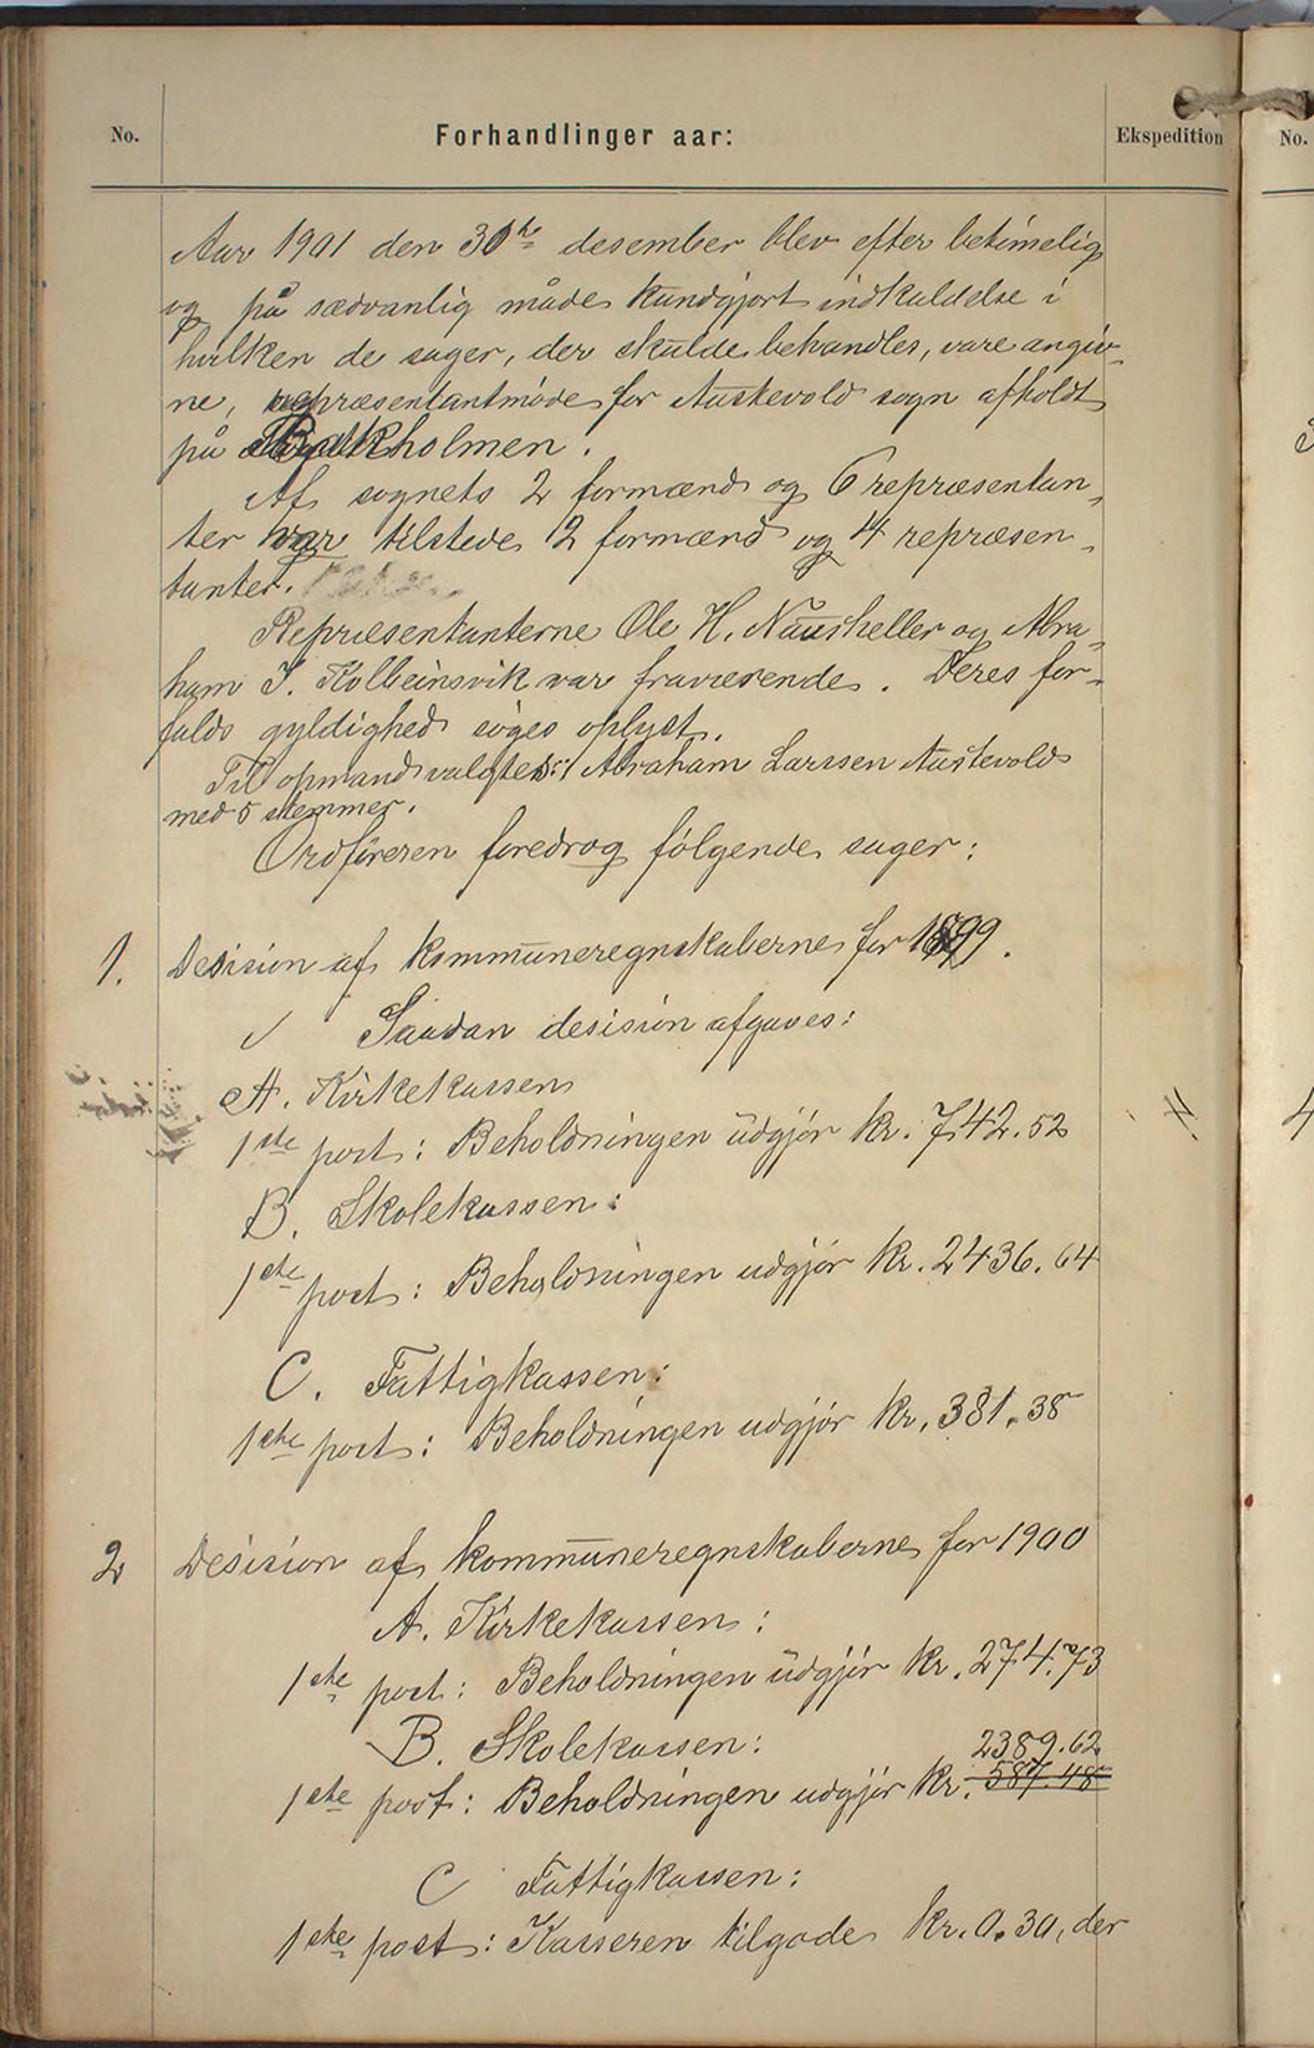 No.
Forhandlinger aar:
Ekspedition
No.
Aar 1901 den 30te desember blev efter betimelig
og på sædvanlig måde kundgjort indkaldelse i
hvilken de sager, der skulde behandles, vare angiv-
ne, repræsentantmøde for Austevold sogn afholdt
på Bakholmen.
Af sognets 2 formænd og 6 repræsentan-
ter var tilstede 2 formænd og 4 repræsen-
tanter.
Repræsentanterne Ole H. Nausheller og Abra-
ham J. Kolbeinsvik var fraværende. Deres for-
falds gyldighed søges oplyst.
Til opmand valgtes: Abraham Larssen Austevold
med 5 stemmer.
Ordføreren foredrog følgende sager:
1. Desision af kommuneregnskaberne for 1899.
Saadan desision afgaves:
A. Kirkekassen
1ste post: Beholdningen udgjør kr. 742.52
B. Skolekassen:
1ste post: Beholdningen udgjør kr. 2436.64
C. Fattigkassen:
1ste post: Beholdningen udgjør kr. 381.38
2 Desision af kommuneregnskaberne for 1900
A. Kirkekassen:
1ste post: Beholdningen udgjør kr. 274.73
B. Skolekassen:
2389.62
1ste post: Beholdningen udgjør kr. 587.48
C Fattigkassen:
1ste post: Kasseren tilgode kr. 0.30, der